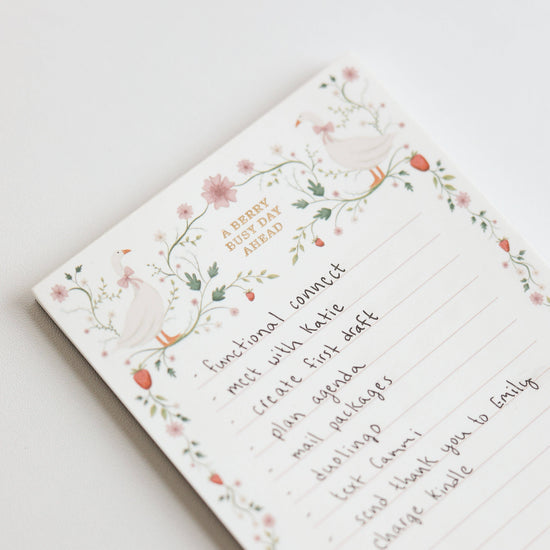 A BERRY
BUSY DAY
AHEAD
· functional connect
· meet with Katie
· create first draft
· plan agenda
· mail packages
· duolingo
· text Cammi
· send thank you to Emily
· charge kindle